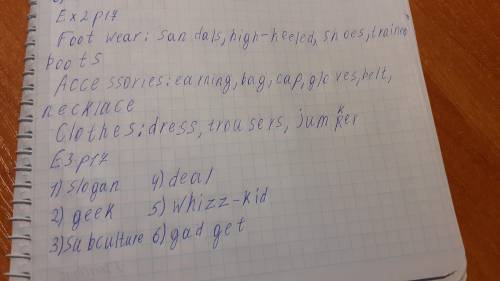 Ex2p17
Foot wear: sandals, high-heeled, shoes, trainers
boots
Accessories: earning, bag, cap, gloves, belt,
necklace
Clothes: dress, trousers, jumper
E3.p17
1) slogan 4) deal
2) geek 5) whizz-kid
3) subculture 6) gadget